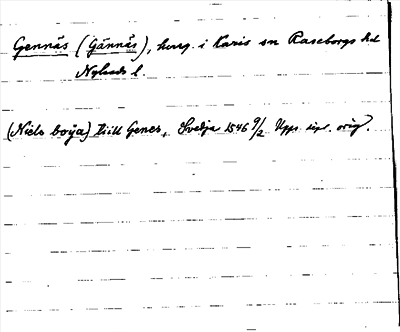 Gennäs (Gännäs), herrg. i Karis sn Raseborgs hd
Nylands l.
(Niels boÿa) tiill Genes, Svidja 1546 9/2 Upps. dipl. orig.